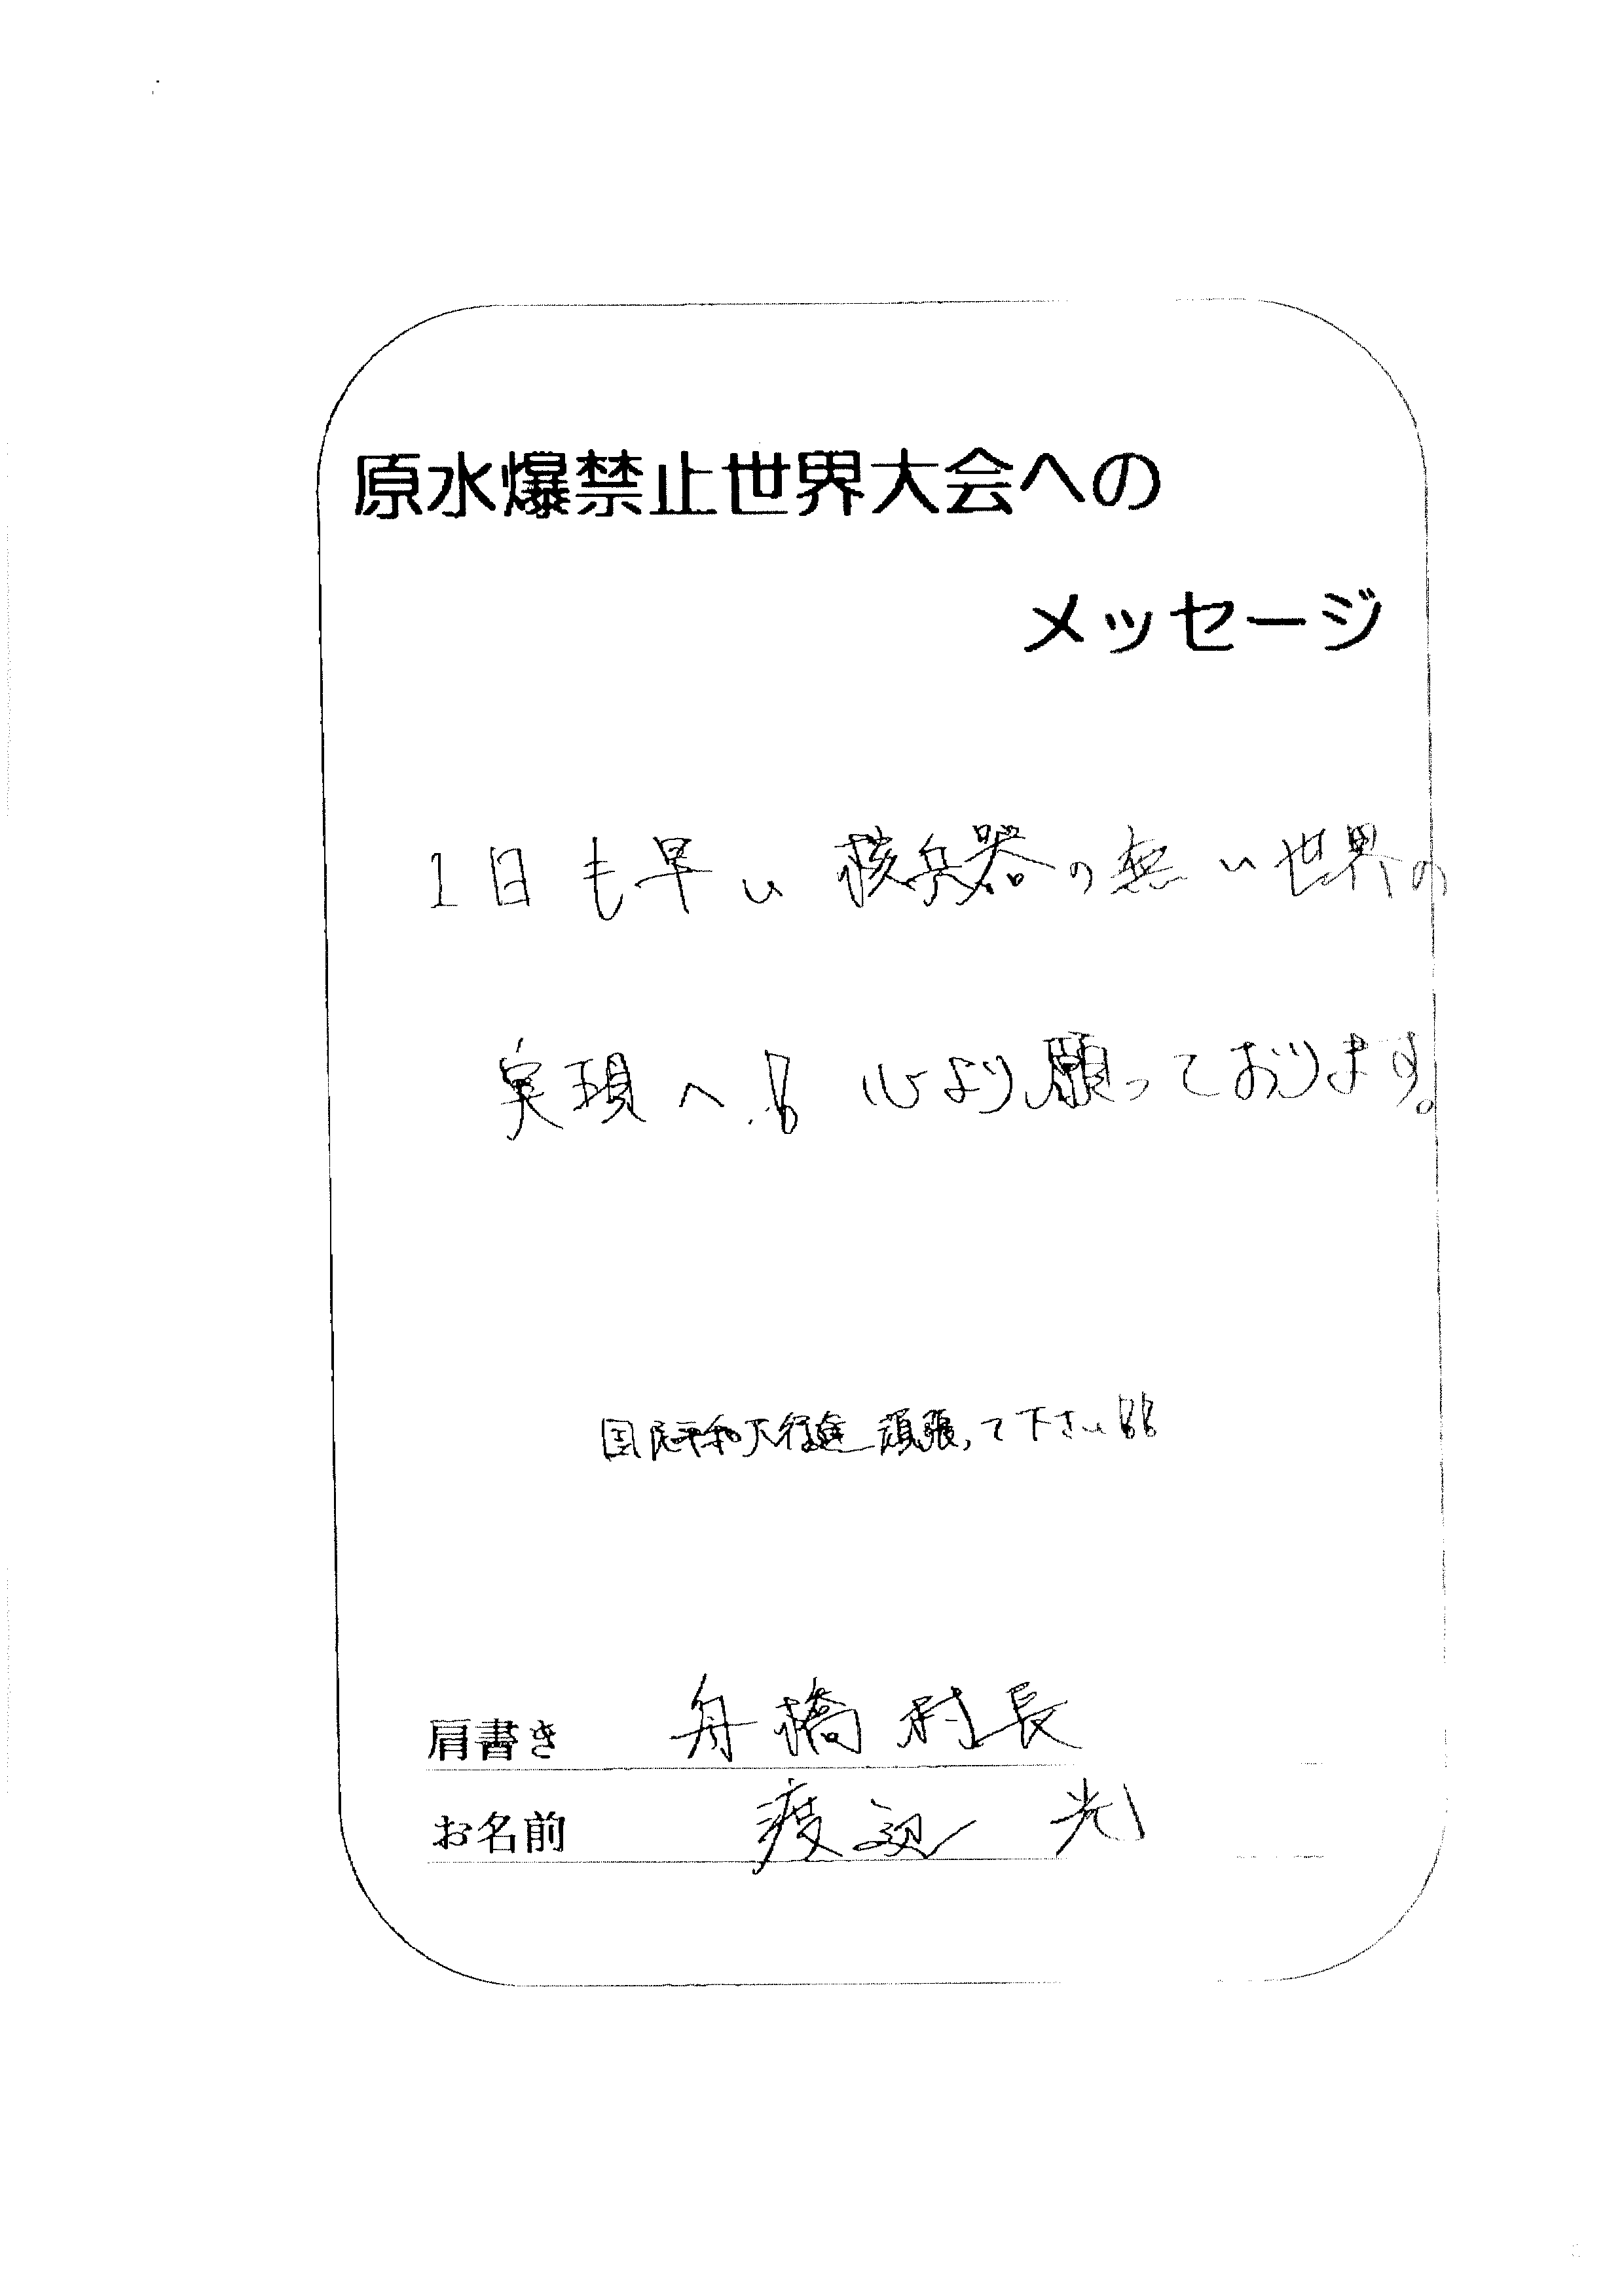 原水爆禁止世界大会への
メッセージ
1日も早い核兵器の無い世界の
実現へ!心より願っております。
国民平和大行進頑張って下さい!!
肩書き 舟橋村長
お名前 渡辺 光